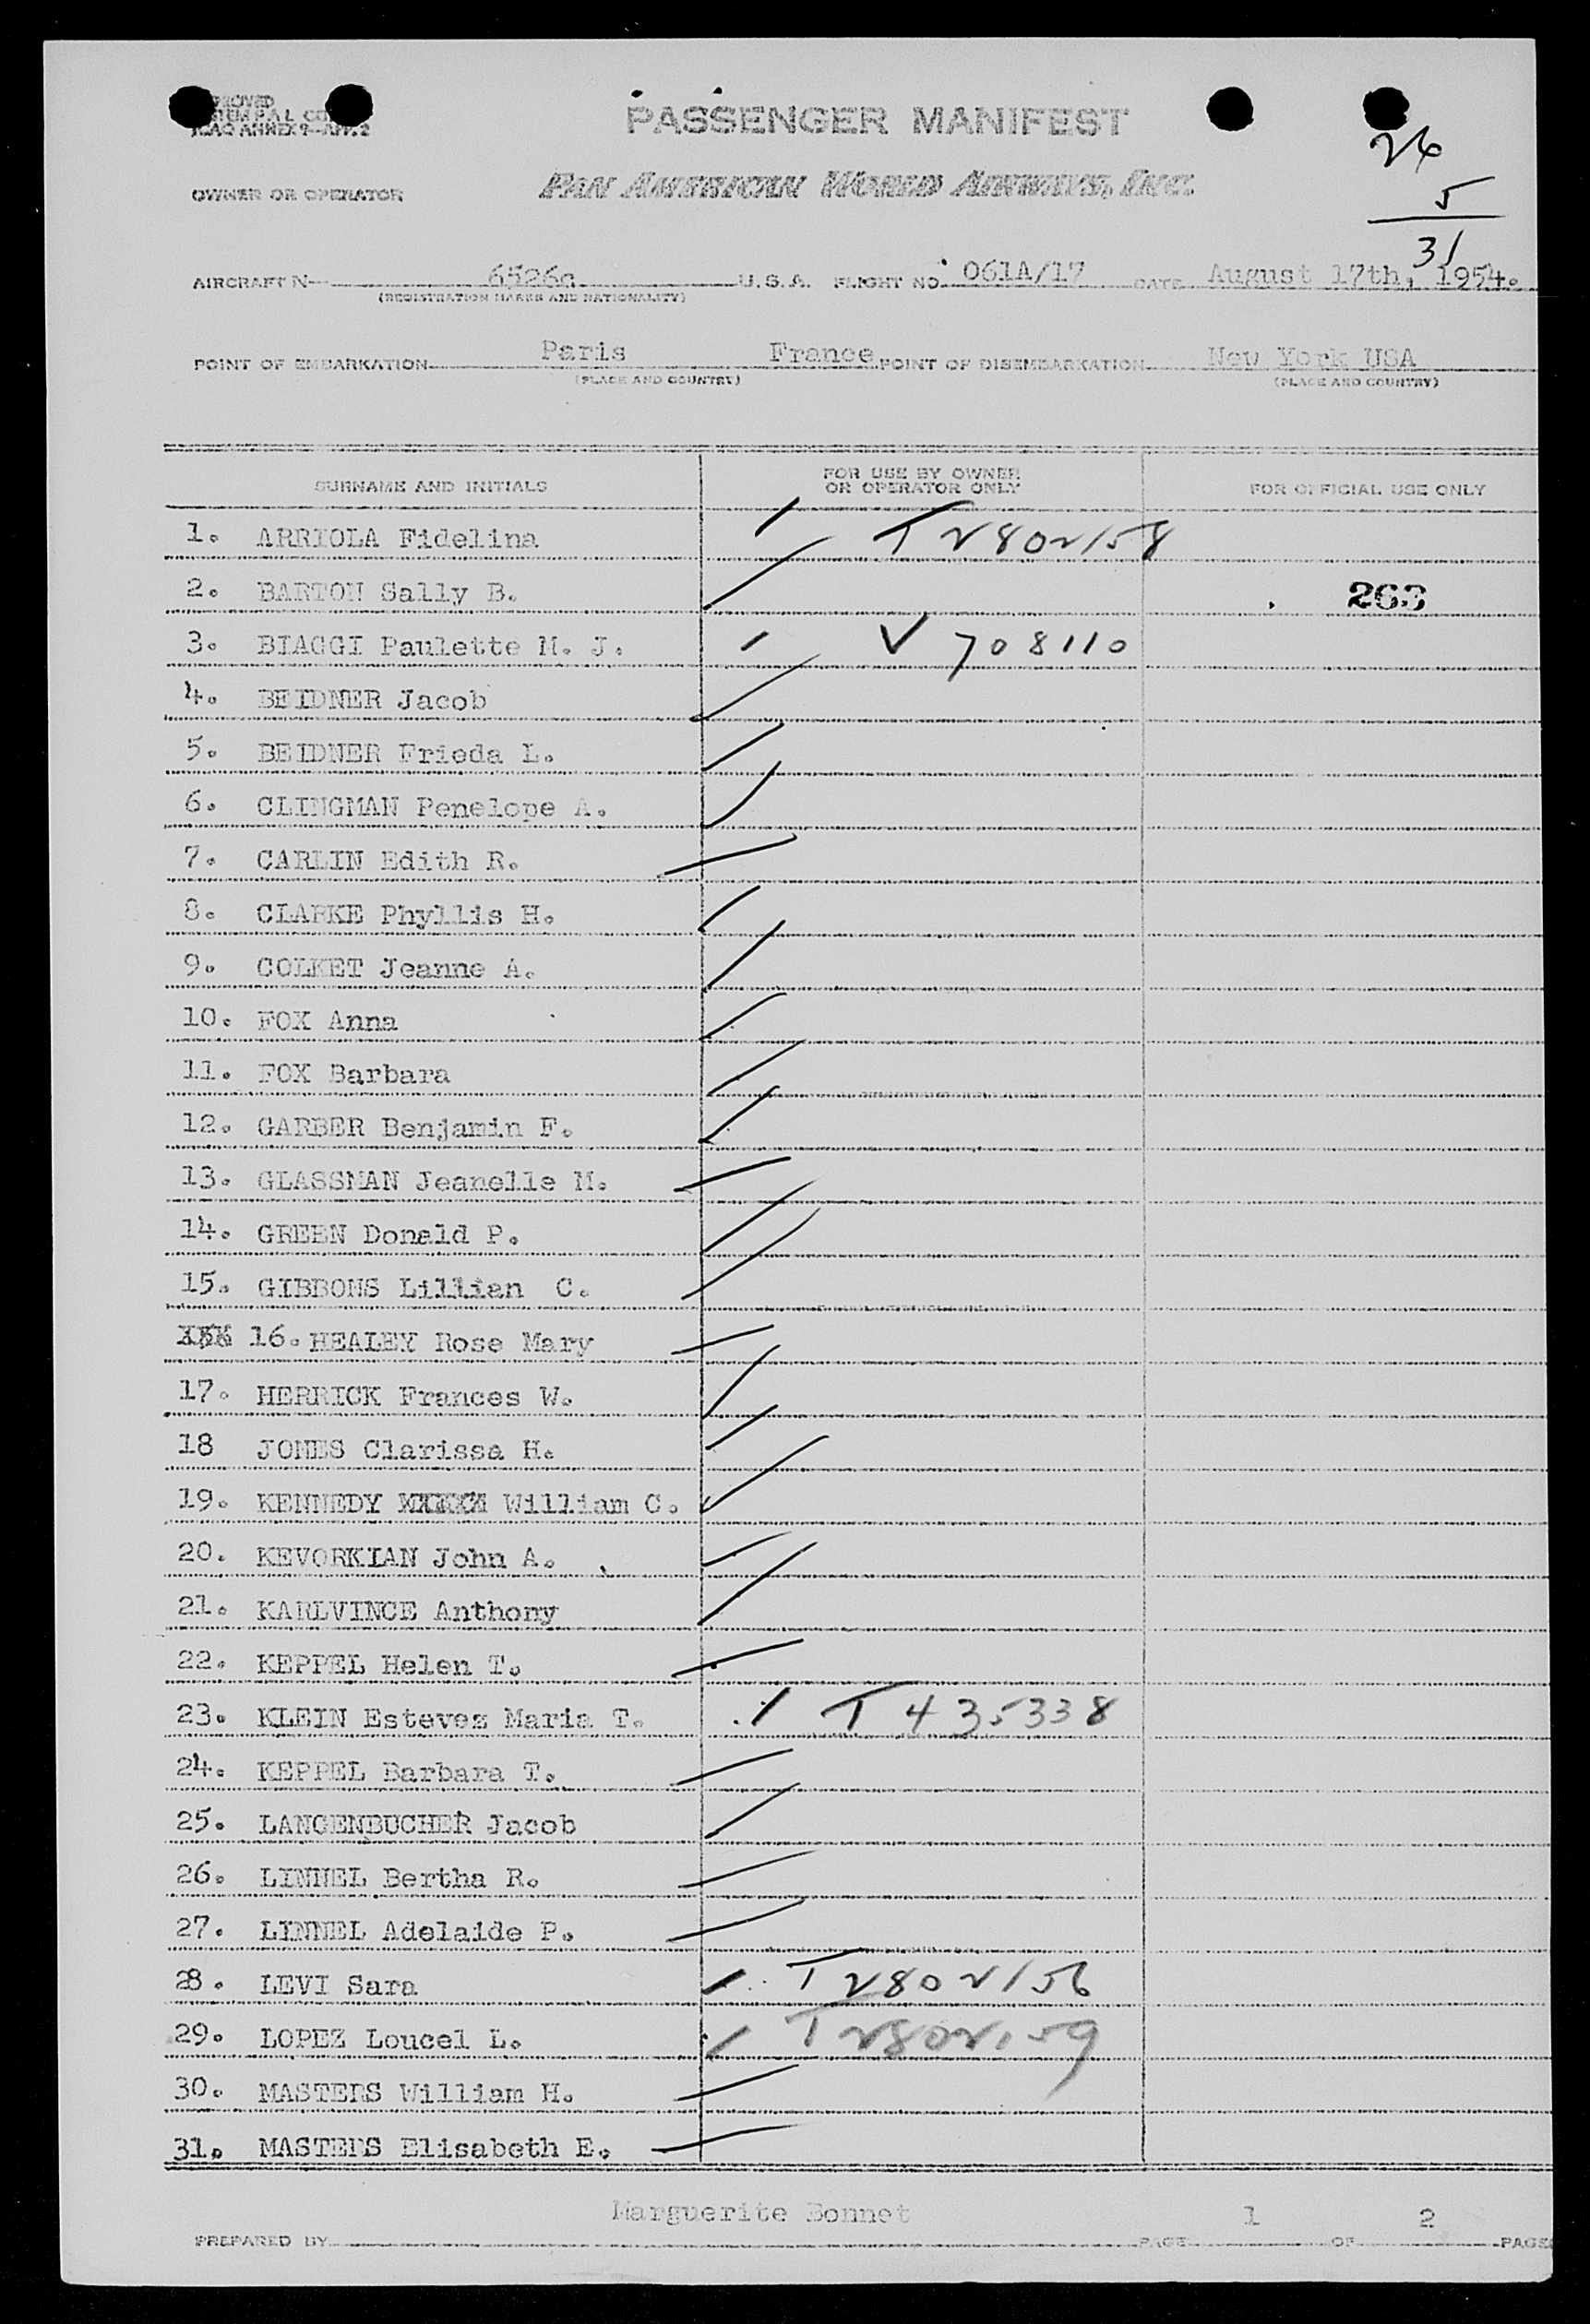 PASSENGER MANIFEST
ICAO ANNEX 9-APP. 2
26
OWNER OR OPERATOR PAN AMERICAN WORLD AIRWAYS, INC.
5
31
AIRCRAFT N 6526c U.S.A. FLIGHT NO. 061A/17 DATE August 17th, 1954.
(REGISTRATION MARKS AND NATIONALITY)
POINT OF EMBARKATION Paris France POINT OF DISEMBARKATION New York USA
(PLACE AND COUNTRY) (PLACE AND COUNTRY)
SURNAME AND INITIALS FOR USE BY OWNER OR OPERATOR ONLY FOR OFFICIAL USE ONLY
1. ARRIOLA Fidelina T2802158
2. BARTON Sally B. 263
3. BIAGGI Paulette M. J. V 708110
4. BEIDNER Jacob
5. BEIDNER Frieda L.
6. CLINGMAN Penelope A.
7. CARLIN Edith R.
8. CLARKE Phyllis H.
9. COLKET Jeanne A.
10. FOX Anna
11. FOX Barbara
12. GARBER Benjamin F.
13. GLASSMAN Jeanelle M.
14. GREEN Donald P.
15. GIBBONS Lillian C.
16. HEALEY Rose Mary
17. HERRICK Frances W.
18 JONES Clarissa H.
19. KENNEDY William C.
20. KEVORKIAN John A.
21. KARLVINCE Anthony
22. KEPPEL Helen T.
23. KLEIN Estevez Maria T. T 435338
24. KEPPEL Barbara T.
25. LANGENBUCHER Jacob
26. LINNEL Bertha R.
27. LINNEL Adelaide P.
28. LEVI Sara T2802156
29. LOPEZ Loucel L. T2802159
30. MASTERS William H.
31. MASTERS Elisabeth E.
Marguerite Bonnet 1 2
PREPARED BY PAGE OF PAGES